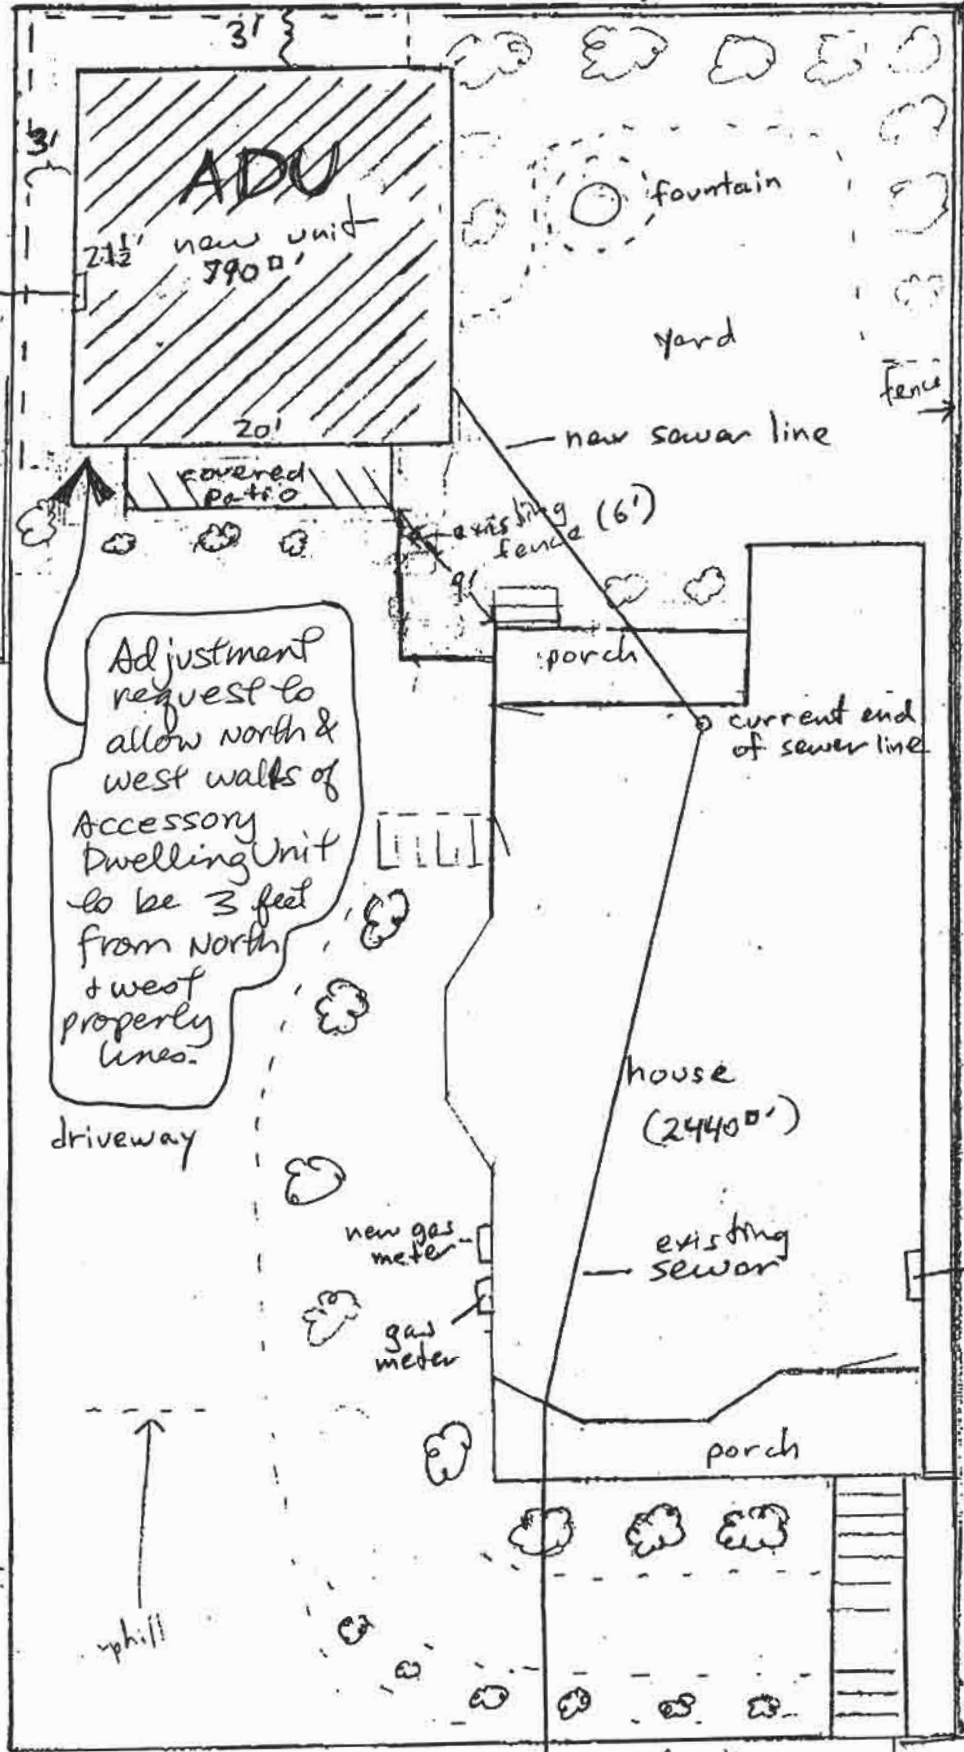 3'
3'
ADU
new unit
790□'
21½'
20'
covered
patio
fountain
yard
fence
new sewer line
existing
fence (6')
9'
porch
current end
of sewer line
Adjustment
request to
allow North &
west walls of
Accessory
Dwelling Unit
to be 3 feet
from North
& west
property
lines.
driveway
house
(2440□')
new gas
meter
existing
sewer
gas
meter
porch
uphill